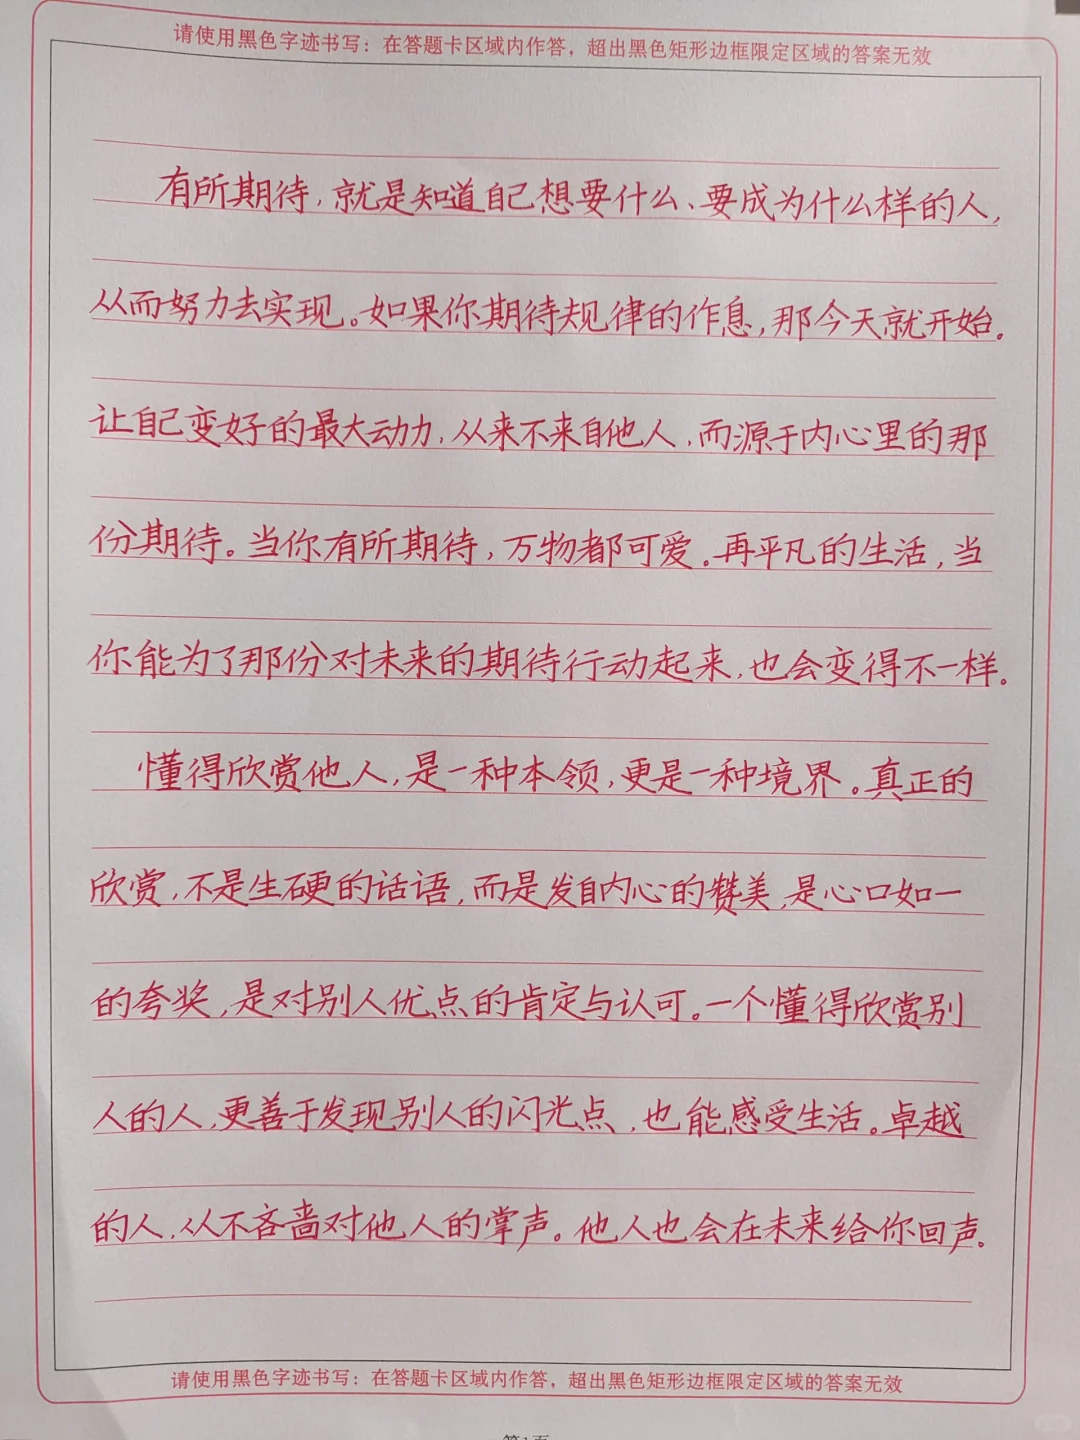 请使用黑色字迹书写：在答题卡区域内作答，超出黑色矩形边框限定区域的答案无效
有所期待，就是知道自己想要什么、要成为什么样的人，
从而努力去实现。如果你期待规律的作息，那今天就开始。
让自己变好的最大动力，从来不来自他人，而源于内心里的那
份期待。当你有所期待，万物都可爱。再平凡的生活，当
你能为了那份对未来的期待行动起来，也会变得不一样。
懂得欣赏他人，是一种本领，更是一种境界。真正的
欣赏，不是生硬的话语，而是发自内心的赞美，是心口如一
的夸奖，是对别人优点的肯定与认可。一个懂得欣赏别
人的人，更善于发现别人的闪光点，也能感受生活。卓越
的人，从不吝啬对他人的掌声。他人也会在未来给你回声。
请使用黑色字迹书写：在答题卡区域内作答，超出黑色矩形边框限定区域的答案无效
第1页